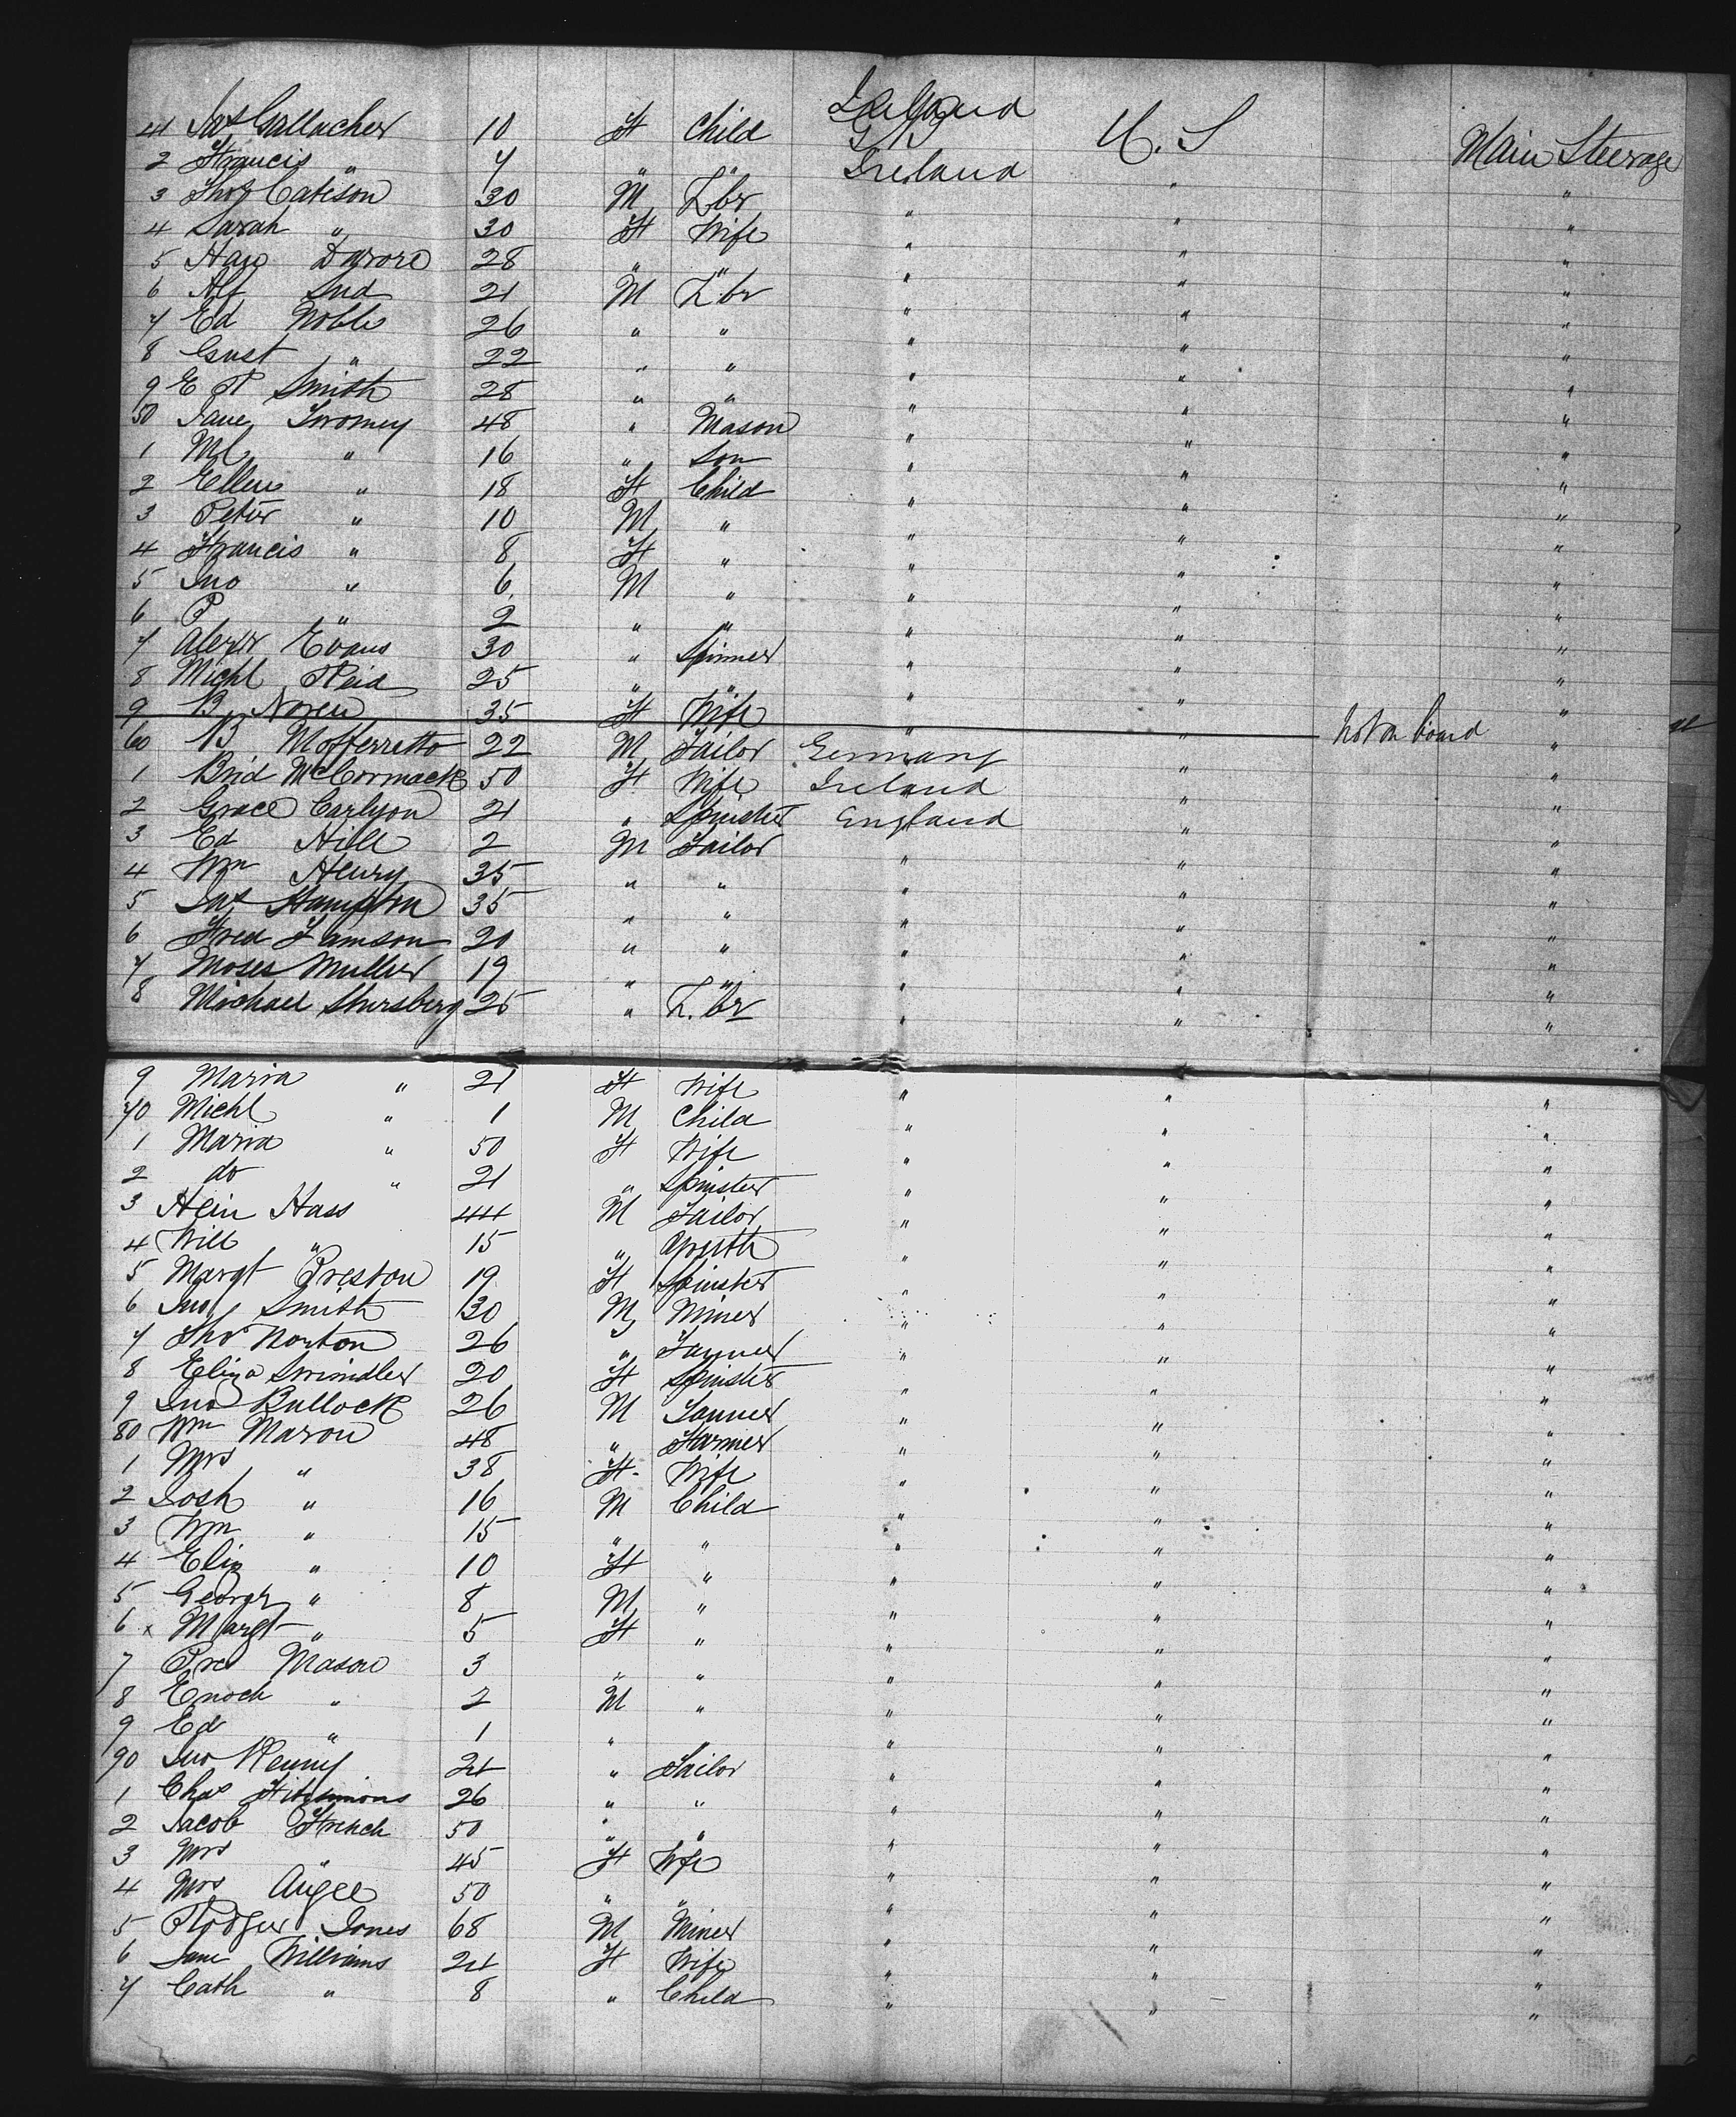 41 Jas Gallacher 10 F Child Ireland U. S Main Steerage
2 Francis " 7 " " Ireland " "
3 Thos Cateson 30 M Lbr " " "
4 Sarah " 30 F Wife " " "
5 28 " " " " "
6 Alf Lud 21 M Lbr " " "
7 Ed Noble 26 " " " " "
8 Gust " 22 " " " " "
9 E R Smith 28 " " " " "
50 Twomey 48 " Mason " " "
1 Ml " 16 " Son " " "
2 Ellen " 18 F Child " " "
3 Peter " 10 M " " " "
4 Francis " 8 F " " " "
5 Jno " 6 M " " " "
6 P " 2 " " " " "
7 Alexr Evans 30 " Spinner " " "
8 Michl Reid 25 " " " " "
9 B Noren 35 F Wife " " Not on board "
60 B Mofferretto 22 M Tailor Germany " "
1 Brid McCormack 50 F Wife Ireland " "
2 Grace Carlyon 21 " Spinster England " "
3 Ed Hill 2 M Tailor " " "
4 Wm Henry 35 " " " " "
5 Jas Hampton 35 " " " " "
6 Fred Lamson 20 " " " " "
7 Moses Muller 19 " " " " "
8 Michael Shursberg 25 " L.br " " "
9 Maria " 21 F Wife " " "
70 Michl " 1 M Child " " "
1 Maria " 50 F Wife " " "
2 do " 21 " Spinster " " "
3 Hein Hass 44 M Tailor " " "
4 Will " 15 " " " "
5 Margt Preston 19 F Spinster " " "
6 Jno Smith 30 M Miner " " "
7 Thos Norton 26 " Tanner " " "
8 Eliza Swindler 20 F Spinster " " "
9 Jno Bullock 26 M Tanner " " "
80 Wm Mason 48 " Farmer " " "
1 Mrs " 38 F. Wife " " "
2 Josh " 16 M Child " " "
3 Wm " 15 " " " " "
4 Eliz " 10 F " " " "
5 George " 8 M " " " "
6 x Margt " 5 F " " " "
7 Mason 3 " " " " "
8 Enoch " 2 M " " " "
9 Ed " 1 " " " " "
90 Jno Kenny 24 " Tailor " " "
1 Chas Fitzsimons 26 " " " " "
2 Jacob French 50 " " " " "
3 Mrs " 45 F Wife " " "
4 Mrs Augee 50 " " " " "
5 Rodger Jones 68 M Miner " " "
6 Jane Williams 24 F Wife " " "
7 Cath " 8 " Child " " "